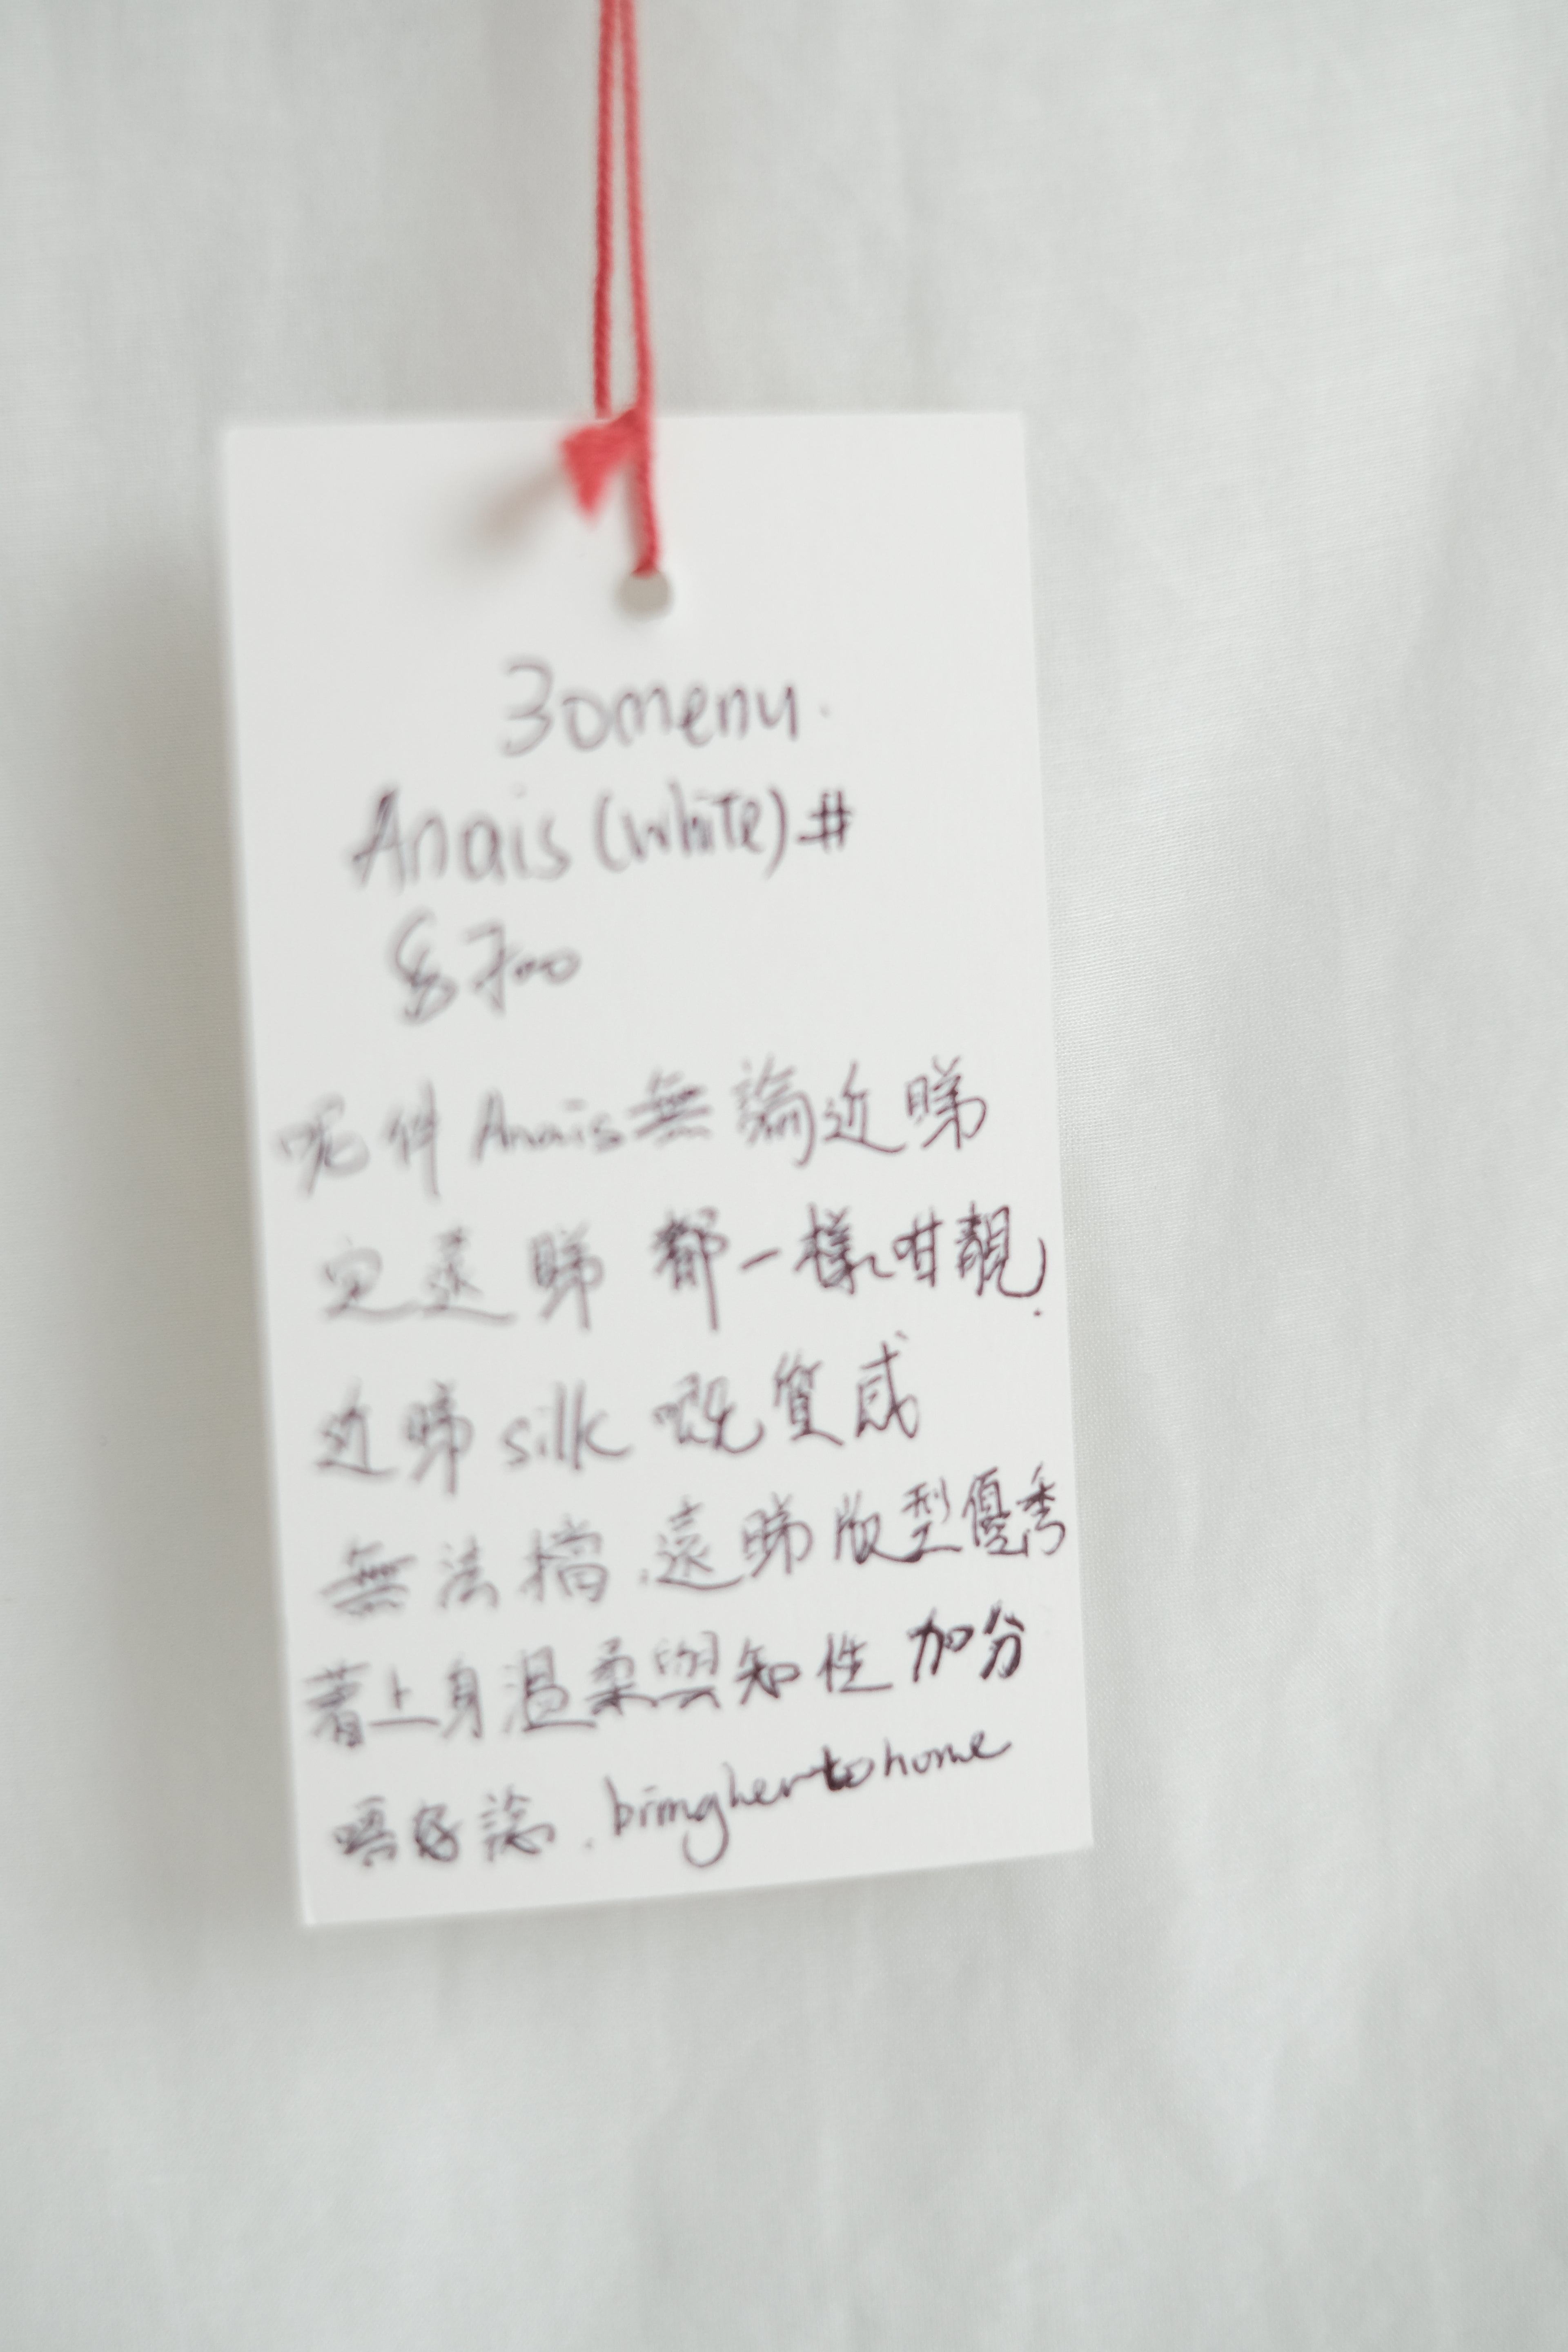 30menu.
Anais (White) #
$700
呢件 Anais 無論近睇
定遠睇 都一樣咁靚.
近睇 silk 嘅質感
無法擋.遠睇版型優秀
著上身溫柔與知性加分
唔好諗.bringhertohome